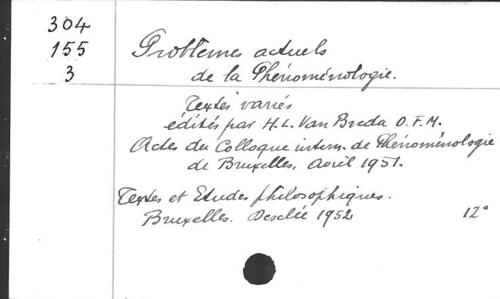 304
155
3
Problèmes actuels
de la Phénoménologie.
Textes variés
édités par H.L. Van Breda O.F.M.
Actes du Colloque intern. de Phénoménologie
de Bruxelles, Avril 1951.
Textes et Etudes philosophiques.
Bruxelles. Desclée 1952
12°